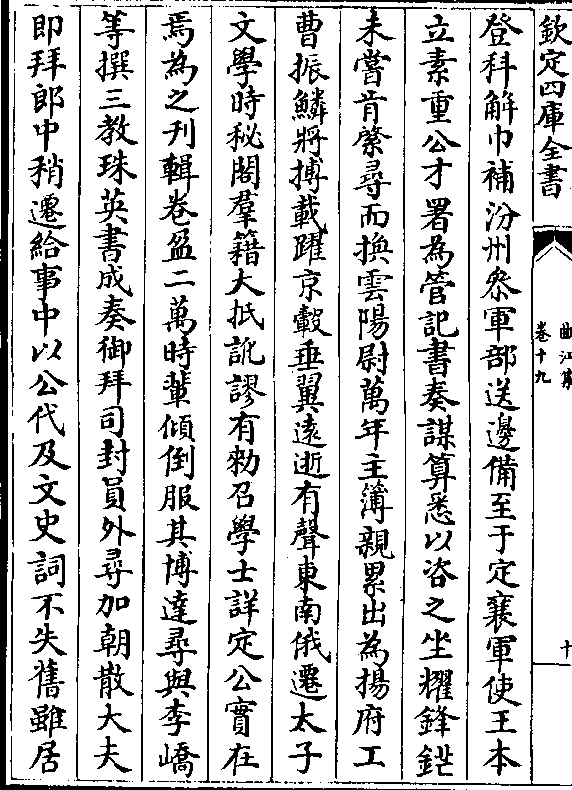 欽定四庫全書
曲江集
卷十九
十
登科解巾補汾州叅軍部送邊備至于定襄軍使王本
立素重公才署為管記書奏謀算悉以咨之坐耀鋒鋩
未嘗肯綮尋而換雲陽尉萬年主簿親累出為揚府工
曹振鱗將搏載躍京轂垂翼遠逝有聲東南俄遷太子
文學時秘閣羣籍大抵訛謬有勅召學士詳定公實在
焉為之刋輯卷盈二萬時輩傾倒服其博達尋與李嶠
等撰三教珠英書成奏御拜司封員外尋加朝散大夫
即拜郎中稍遷給事中以公代及文史詞不失舊雖居